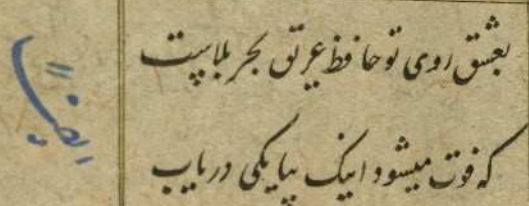 بعشق روی تو حافظ غریق بحر بلاست
که فوت میشود اینک بیا یکی دریاب
ایضاً